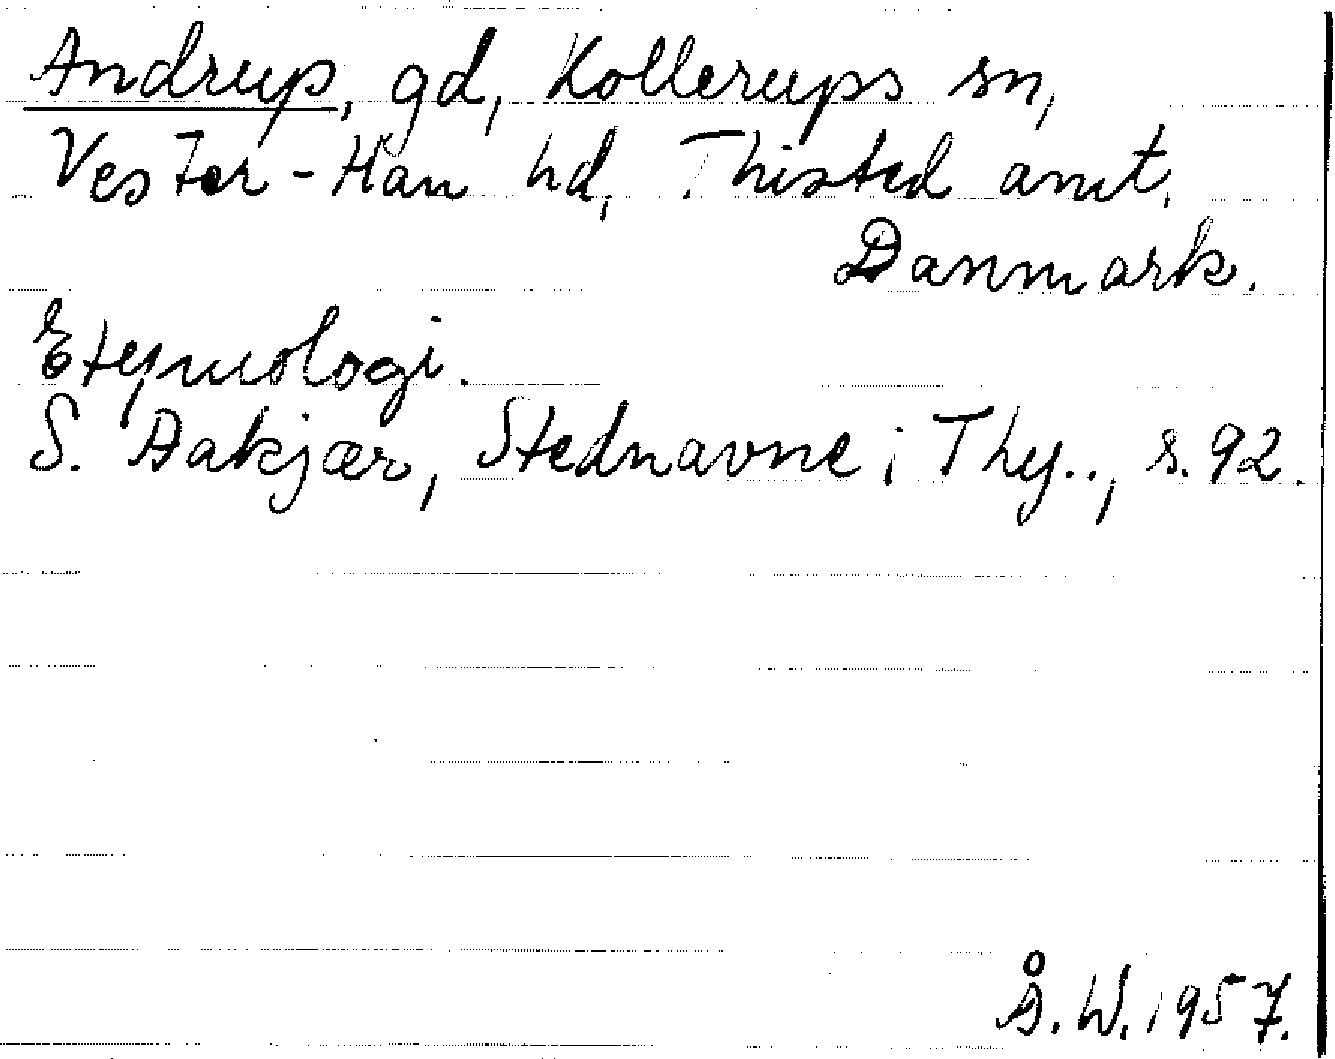 Andrup, gd, Kollerups sn,
Vester-Han hd, Thisted amt,
Danmark.
Etymologi.
S. Aakjær, Stednavne i Thy.., s. 92.
Å. W. 1957.